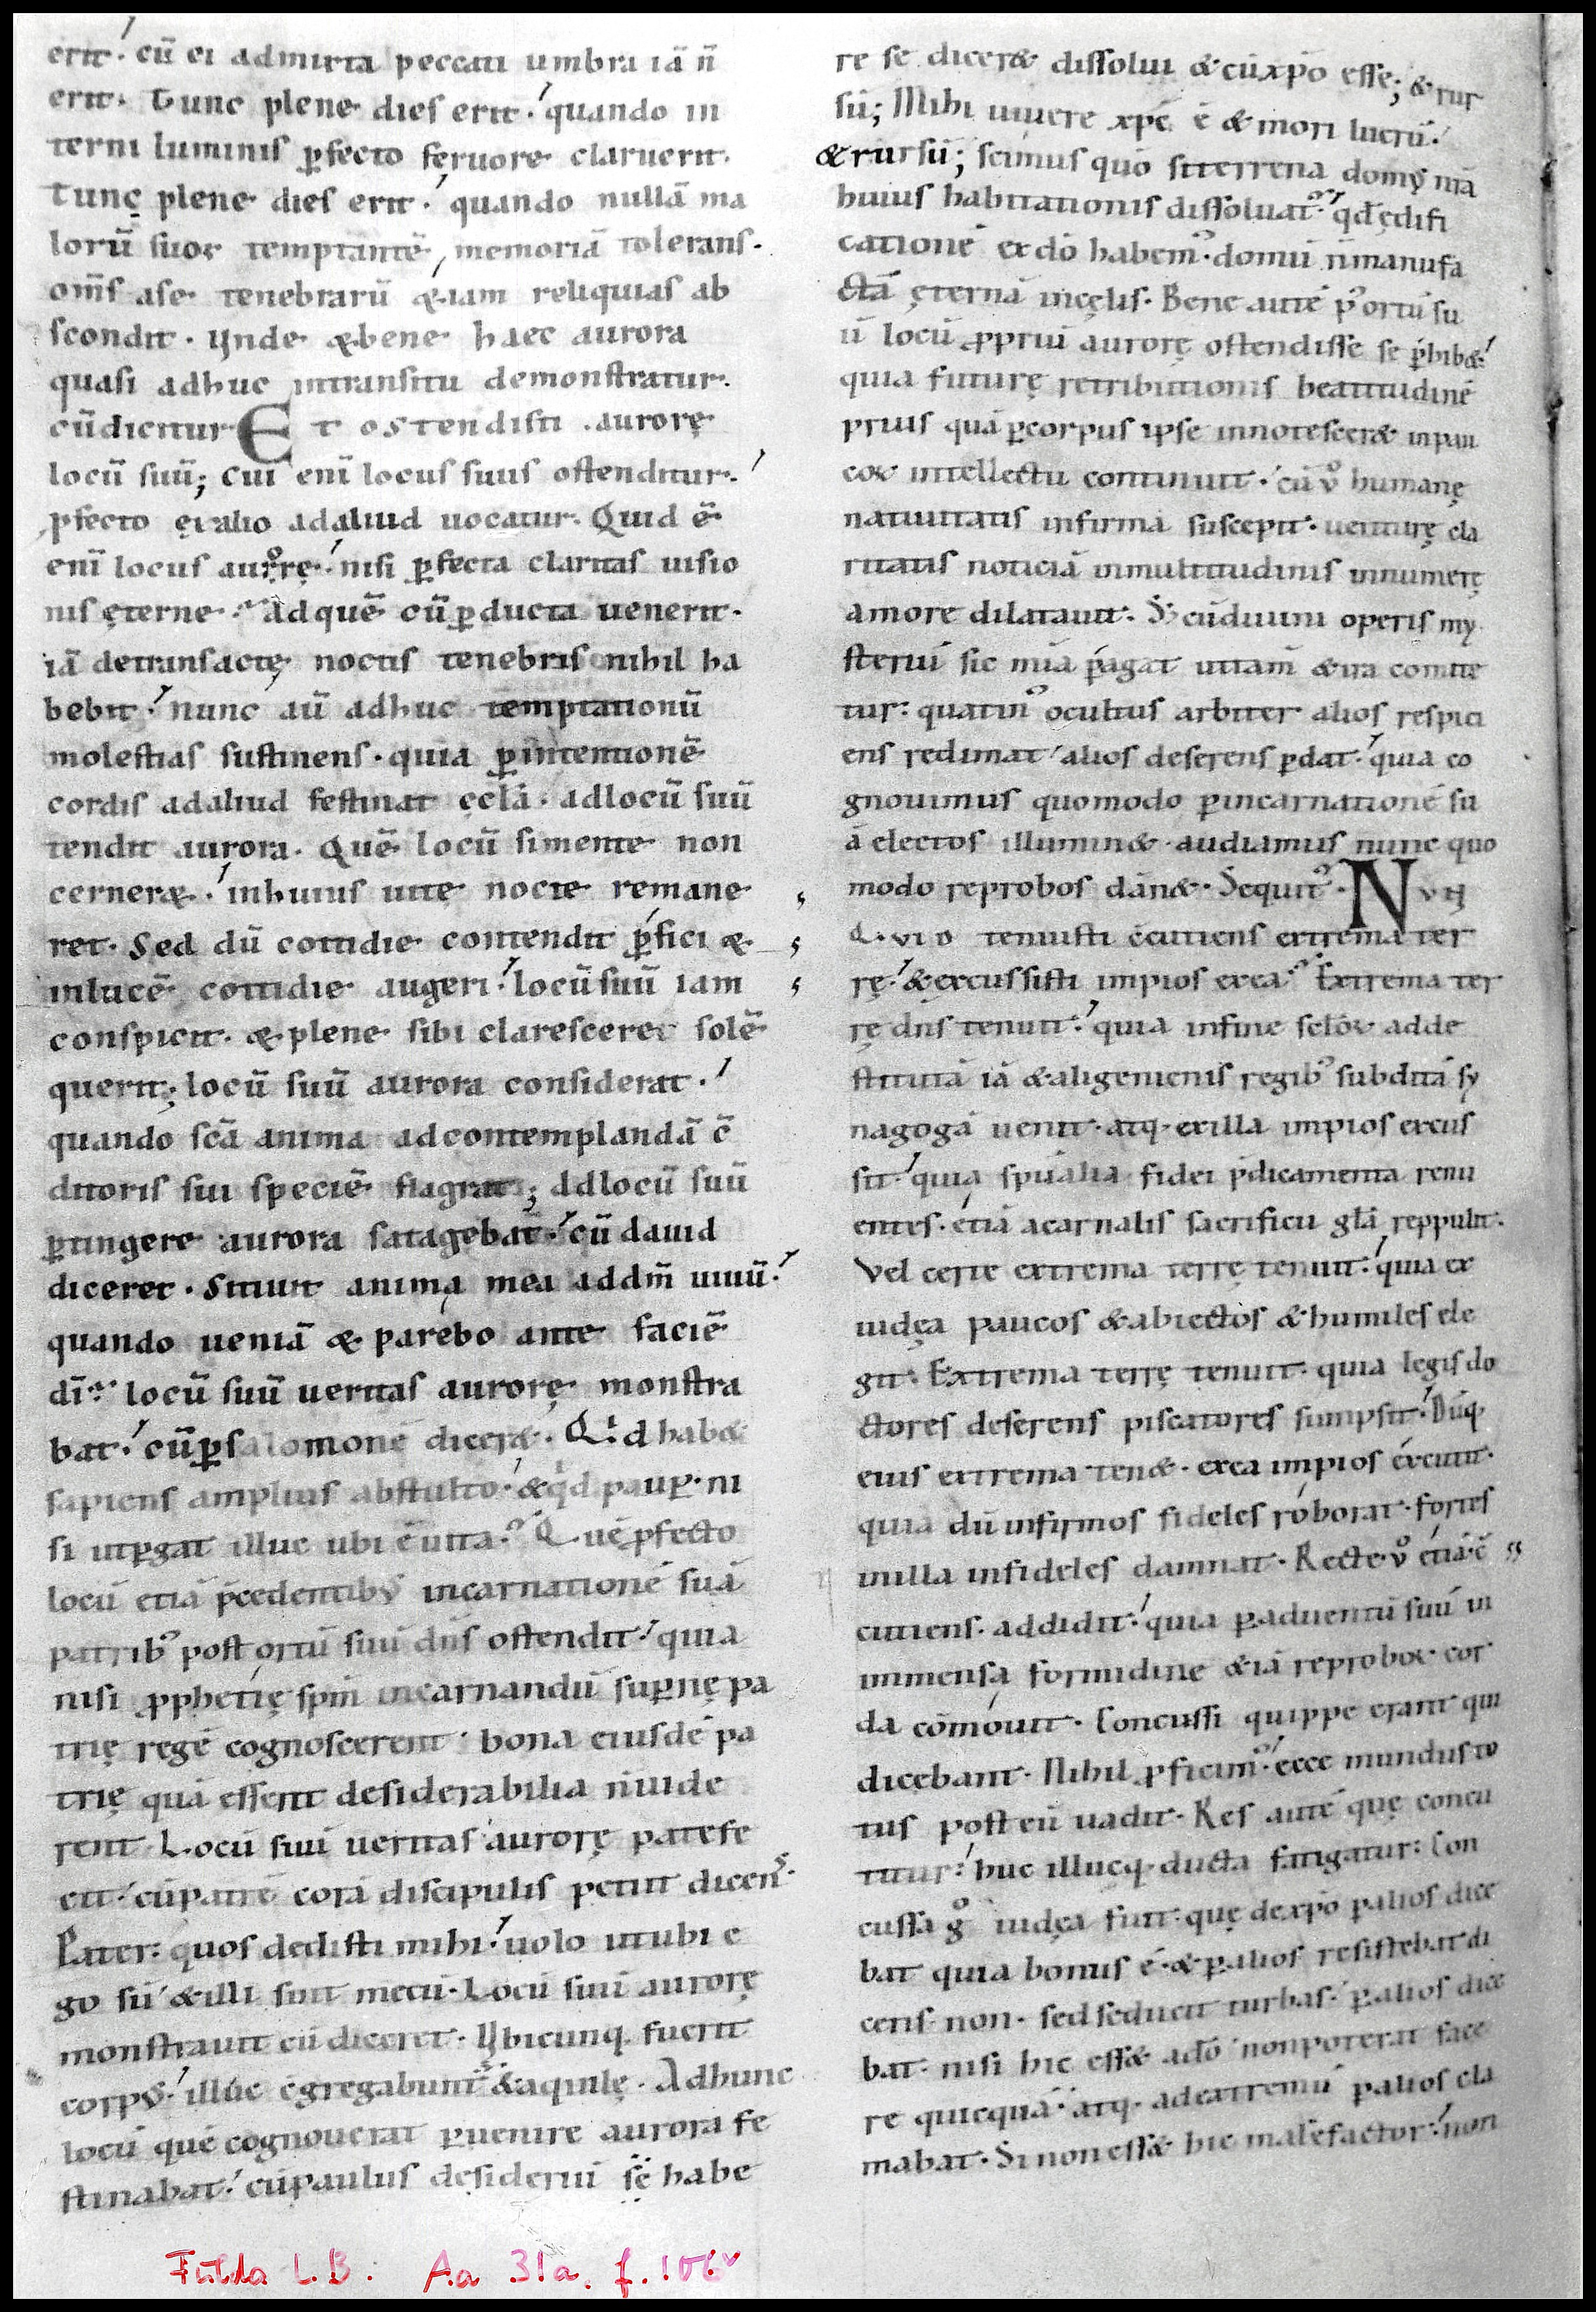 erit. cū ei admixta peccati umbra iā n̄
erit. Tunc plene dies erit. quando in
terni luminis ꝑfecto feruore claruerit.
Tunc plene dies erit. quando nullā ma
lorū suoꝝ temptantē memoriā tolerans.
om̄s a se tenebrarū &iam reliquias ab
scondit. Unde & bene haec aurora
quasi adhuc intransitu demonstratur.
cū dicitur Et ostendisti aurorę
locū suū; Cui enī locus suus ostenditur.
ꝓfecto ex alio ad aliud uocatur. Quid ē
enī locus aurorę. nisi ꝑfecta claritas uisio
nis ęterne. Ad quē cū ꝑducta uenerit.
iā de transactę noctis tenebris nihil ha
bebit. nunc aū adhuc temptationū
molestias sustinens. quia ꝑ intentionē
cordis ad aliud festinat ęcl̄a. ad locū suū
tendit aurora. Quē locū si mente non
cerner&. in huius uite nocte remane
ret. Sed dū cottidie contendit ꝑfici &
in lucē cottidie augeri. locū suū iam
conspicit. & plene sibi clarescerec solē
querit; locū suū aurora considerat.
quando sc̄a anima ad contemplandā c̄
ditoris sui speciē flagrat; Ad locū suū
ꝑtingere aurora satagebat. cū dauid
diceret. Sitiuit anima mea ad dm̄ uiuū.
quando ueniā & parebo ante faciē
dī. locū suū ueritas aurorę monstra
bat. cū ꝑ salomonē dicer&. Qid hab&
sapiens amplius ab stulto. & qid pauꝑ. ni
si ut ꝑgat illuc ubi ē uita. Quē ꝓfecto
locū etiā p̄cedentibꝰ incarnationē suā
patribꝰ post ortū suū dn̄s ostendit. quia
nisi ꝓphetię spm̄ incarnandū suꝑnę pa
trię regē cognoscerent. bona eiusdē pa
trię quā essent desiderabilia n̄ uide
rent. Locū suū ueritas aurorę patefe
cit. cū patrē corā discipulis petiit dicens.
Pater. quos dedisti mihi. uolo ut ubi e
go sū & illi sint mecū. Locū suū aurorę
monstrauit cū diceret. Ubicunq. fuerit
corpꝰ. illuc c̄gregabunt᷒ & aquilę. Ad hunc
locū quē cognouerat ꝑuenire aurora fe
stinabat. cū paulus desideriū sē habe
re se dicer& dissolui & cū xp̄o esse; & rur
sū; Mihi uiuere xp̄c ē & mori lucrū.
& rursū; scimus quō si terrena domꝰ nr̄a
huius habitationis dissoluat᷒. qd̄ ędifi
cationē ex dō habemꝰ. domū n̄ manufa
ctā ęternā in cęlis. Bene autē p̄ ortū su
ū locū ꝓpriū aurorę ostendisse se ꝑhib&.
quia futurę retributionis beatitudinē
prius quā ꝑ corpus ipse innotescer& in pau
coꝝ intellectu continuit. cū ỏ humanę
natiuitatis infirma suscepit. uenturę cla
ritatis noticiā in multitudinis innumerę
amore dilatauit. S; cū diuini operis my
steriū sic mīa ꝑagat ut tam̄ & ira comite
tur. quatinꝰ occultus arbiter alios respici
ens redimat alios deserens ꝑdat. quia co
gnouimus quomodo ꝑ incarnationē su
ā electos illumin&. audiamus nunc quo
modo reprobos dān&. Sequit᷒. Nun
Quid tenuisti c̄cutiens extrema ter
rę. & excussisti impios ex ea. Extrema ter
rę dn̄s tenuit. quia in fine scl̄oꝝ ad de
stitutā iā & aligenienis regibꝰ subditā sy
nagogā uenit. atq. ex illa impios excus
sit. quia spū̄alia fidei p̄dicamenta renu
entes. etiā a carnalis sacrificii gl̄a reppulit.
Vel certe extrema terrę tenuit. quia ex
iudęa paucos & abiectos & humiles ele
git. Extrema terrę tenuit. quia legis do
ctores deserens piscatores sumpsit. Dūq.
eius extrema ten&. ex ea impios excutit.
quia dū infirmos fideles roborat. fortes
in illa infideles damnat. Recte ỏ etiā c̄
cutiens. addidit. quia ꝑ aduentū suū in
immensa formidine & iā reproboꝝ cor
da cōmouit. Concussi quippe erant qui
dicebant. Nihil ꝓficimꝰ. ecce mundus to
tus post eū uadit. Res autē quę concu
titur. huc illucq. ducta fatigatur. Con
cussa gͦ iudęa fuit. quę de xp̄o ꝑ alios dice
bat quia bonus ē. & ꝑ alios resistebat di
cens non. sed seducit turbas. ꝑ alios dice
bat. nisi hic ess& a dō non poterat face
re quicquā. atq. ad extremū ꝑ alios cla
mabat. Si non ess& hic malefactor. non
Fulda L.B. Aa 31a. f. 106v